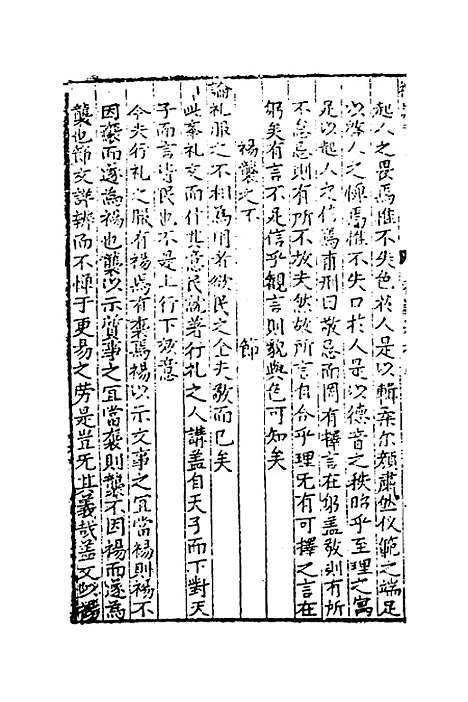 起人之畏焉惟不失色於人是以輯柔尔顔肅然仪範之端足
以啓人之憚焉惟不失口於人是以德音之秩昭乎至理之寓
足以起人之信焉甫刑曰敬忌而罔有擇言在躬盖敬則有所
不怠忌則有所不放夫然故所言自合乎理无有可擇之言在
躬矣有言不足信乎觀言則貌與色可知矣
裼襲之不 節
論礼服之不相爲用者欲民之全夫敬而已矣
此奉礼文而什其意民就著行礼之人講盖自天子而下對天
子而言皆民也不是上行下效意
今夫行礼之服有裼焉有襲焉裼以示文事之宜當裼則裼不
因襲而遂為裼也襲以示質事之宜當襲則襲不因裼而遂為
襲也節文詳辨而不憚于更易之劳是豈无其義哉盖文必裼